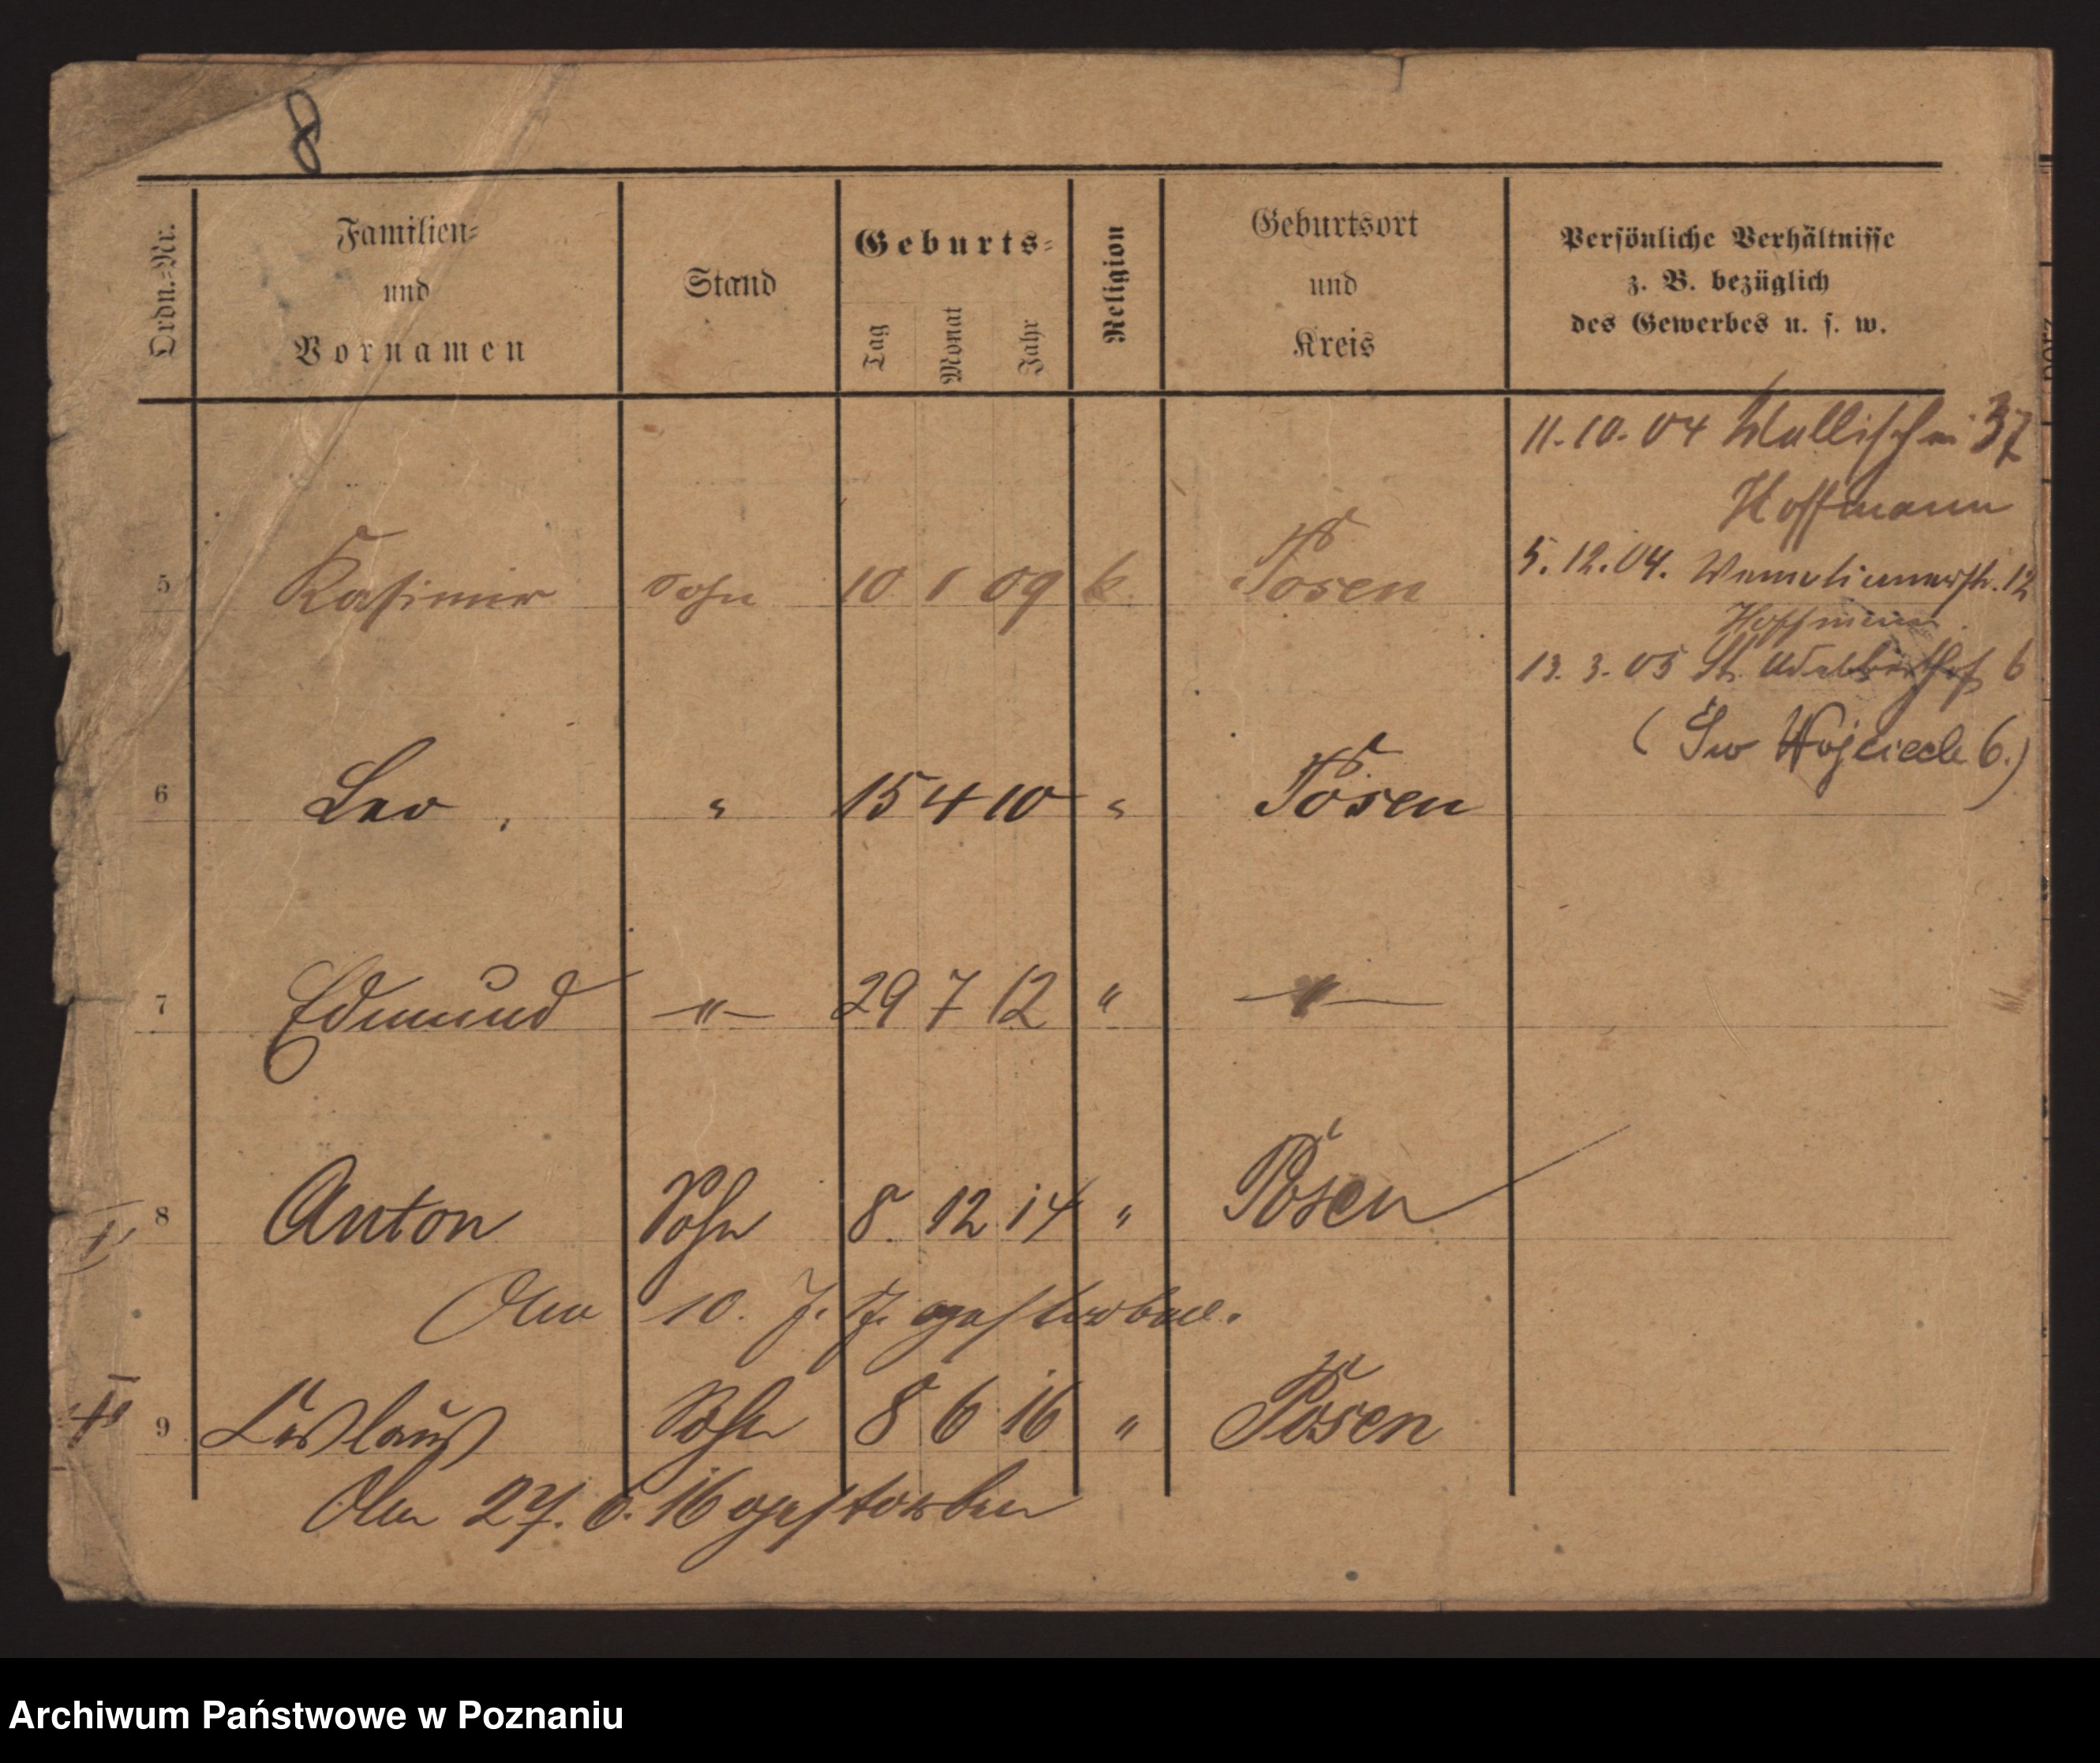 8
Ordn.-Nr.
Familien-
und
Vornamen
Stand
Geburts-
Tag
Monat
Jahr
Religion
Geburtsort
und
Kreis
Persönliche Verhältnisse
z. B. bezüglich
des Gewerbes u. s. w.
11.10.04 Wallischei 37
Hoffmann
5.12.04. 12
Hoffmann
13.3.05 St. Adalberthof 6
(Św Wojciech 6.)
5 Kasimir Sohn 10 1 09 k. Posen
6 Leo " 15 4 10 " Posen
7 Edmund —"— 29 7 12 " —"—
8 Anton Sohn 8. 12 14 " Posen
Am 10. 7. 17. gestorben.
9 Sohn 8 6 16 " Posen
Am 27. 6. 16 gestorben
Archiwum Państwowe w Poznaniu